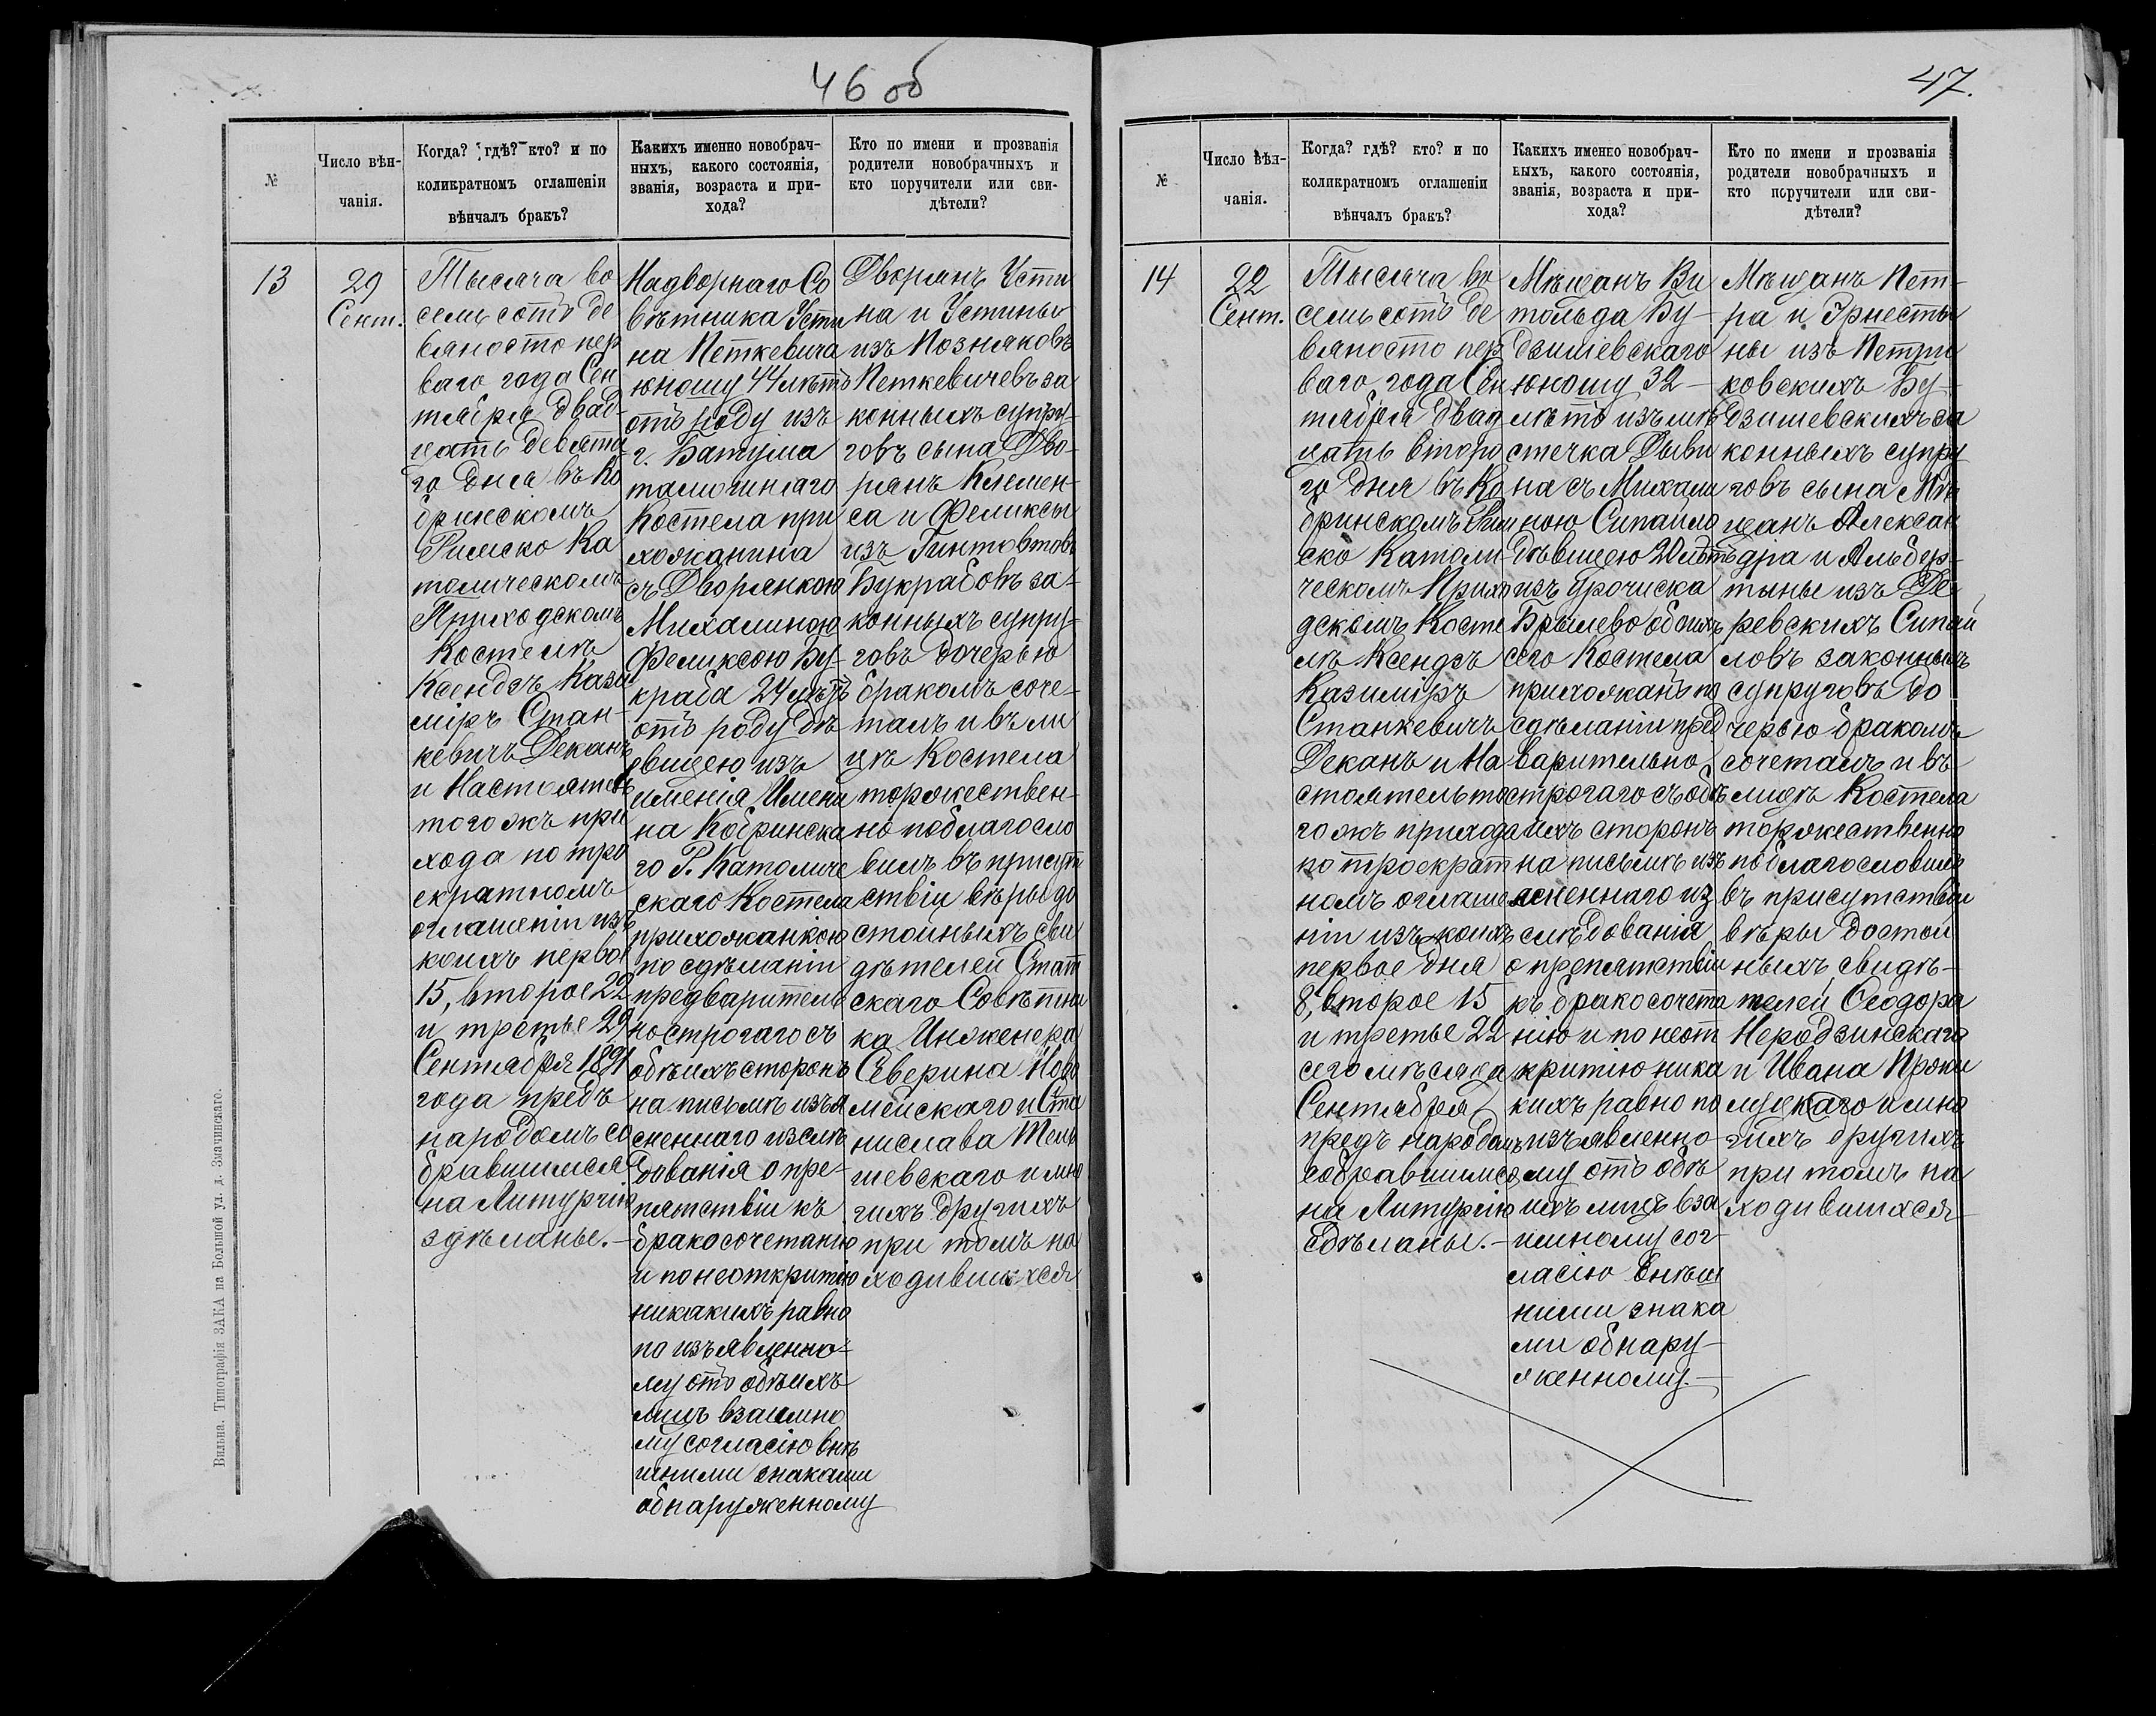 46 об
№
Число вѣн-
чанія.
Когда? гдѣ? кто? и по
коликратномъ оглашеніи
вѣнчалъ бракъ?
Какихъ именно новобрач-
ныхъ, какого состоянія,
званія, возраста и при-
хода?
Кто по имени и прозванія
родители новобрачныхъ и
кто поручители или сви-
дѣтели?
13
29
Сент.
Тысяча во
семь сотъ де
вяносто пер
ваго года Сен
тября двад-
цать девята
го дня въ Ко
бринскомъ
Римско Ка
толическомъ
Приходскомъ
Костелѣ
Ксендзъ Кази
міръ Стан-
кевичъ Деканъ
и Настоятель
того жъ при
хода по тро
екратномъ
оглашеніи изъ
коихъ первое
15, второе 22
и третье 29
Сентября 1891
года предъ
народомъ со
бравшимся
на Литургію
здѣланье.-
Надворнаго Со
вѣтника Усти
на Петкевича
юношу 44 лѣтъ
отъ роду изъ
г. Батума
тамошняго
Костела при
хожанина
съ Дворянкою
Михалиною
Феликсою Бу-
краба 24 лѣтъ
отъ роду дѣ
вицею изъ
имѣнія Имени
на Кобринска
го Р. Католиче
скаго Костела
прихожанкою
по сдѣланіи
предваритель
но строгаго съ
обѣихъ сторонъ
на письмѣ изъя
сненнаго изслѣ
дованія о пре-
пятствіи къ
бракосочетанію
и по неоткритію
никакихъ равно
по изъявленно-
му отъ обѣихъ
лицъ взаимно
му согласію внѣ
шними знаками
обнаруженному
Дворянъ Усти
на и Устины
изъ Позняковъ
Петкевичевъ за
конныхъ супру-
говъ сына Дво-
рянъ Клемен-
са и Феликсы
изъ Гинтовтовъ
Букрабовъ за-
конныхъ супру-
говъ дочерью
бракомъ соче-
талъ и въ ли
цѣ Костела
торжествен-
но поблагосло
вилъ въ присут
ствіи вѣры до
стойныхъ сви
дѣтелей Стат
скаго Совѣтни
ка Инженера
Северина Ново
мейскаго и Ста
нислава Тель
шевскаго и мно
гихъ другихъ
при томъ на
ходившихся
Вильна. Типографія ЗАКА на Большой ул. д. Змачинскаго.
47.
№
Число вѣн-
чанія.
Когда? гдѣ? кто? и по
коликратномъ оглашеніи
вѣнчалъ бракъ?
Какихъ именно новобрач-
ныхъ, какого состоянія,
званія, возраста и при-
хода?
Кто по имени и прозванія
родители новобрачныхъ и
кто поручители или сви-
дѣтели?
14
22
Сент.
Тысяча во
семь сотъ де
вяносто пер
ваго года Сен
тября двад
цать второ
го дня въ Ко
бринскомъ Рим
ско Католи-
ческомъ Прихо
дскомъ Косте
лѣ Ксендзъ
Казиміръ
Станкевичъ
Деканъ и На
стоятель то
гожъ прихода
по троекрат
номъ оглаше
ніи изъ коихъ
первое дня
8, второе 15
и третье 22
сего мѣсяца
Сентября
предъ народомъ
собравшимся
на Литургію
сдѣланы.-
Мѣщанъ Ви
тольда Бу-
дзишевскаго
юношу 32-
лѣтъ изъ мѣ
стечка Дыви
на съ Михали
ною Сипайло
дѣвицею 20 лѣтъ
изъ урочиска
Брилево обоихъ
сего Костела
прихожанъ по
сдѣланіи пред
варительно
строгаго съ обѣ
ихъ сторонъ
на письмѣ изъ
ясненнаго из
слѣдованія
о препятствіи
къ бракосочета
нію и по неот
критію ника
кихъ равно по
изъявленно-
му отъ обѣ
ихъ лицъ вза
имному сог-
ласію внѣш
ними знака
ми обнару-
женному.-
Мѣщанъ Пет-
ра и Эрнесты
ны изъ Петри
ковскихъ Бу-
дзишевскихъ за
конныхъ супру
говъ сына Мѣ
щанъ Алексан
дра и Альбер-
тыны изъ Де
ревскихъ Сипай
ловъ законныхъ
супруговъ до
черью бракомъ
сочеталъ и въ
лицѣ Костела
торжественно
поблагословилъ
въ присутствіи
вѣры достой
ныхъ свидѣ-
телей Ѳеодора
Неродзинскаго
и Ивана Проки
мускаго и мно
гихъ другихъ
при томъ на
ходившихся